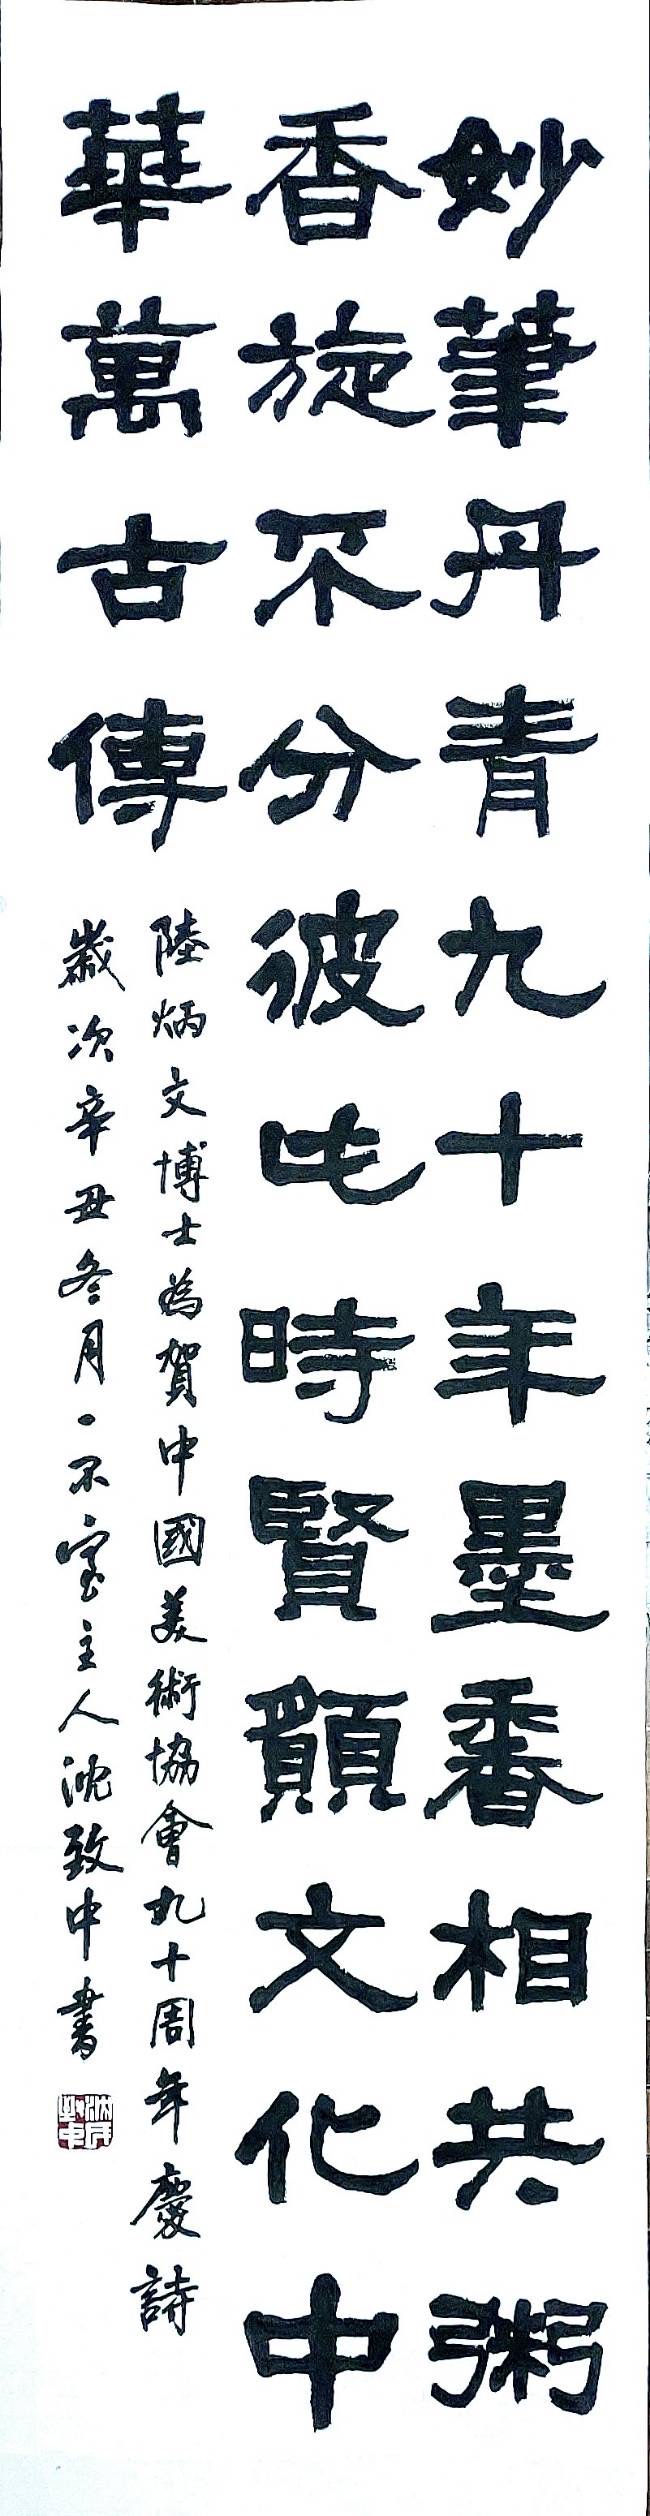 妙筆丹青九十年墨香相共粥
香旋不分彼此時賢顯文化中
華萬古傳
陸炳文博士為賀中國美術協會九十周年慶詩
歲次辛丑冬月一不室主人沈致中書